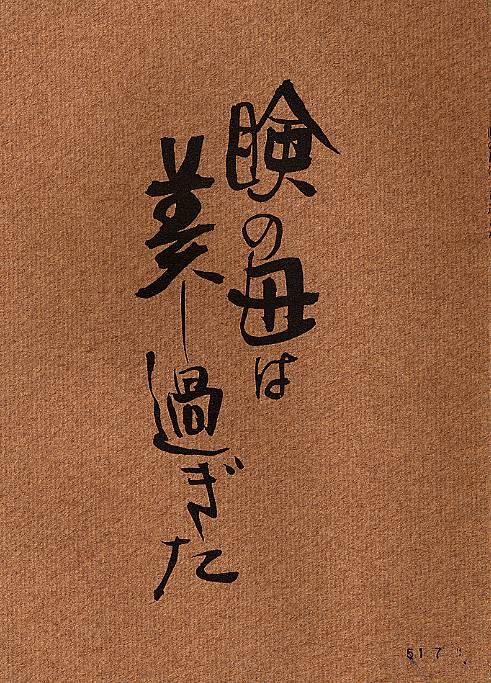 瞼の母は
美し過ぎた
51 7